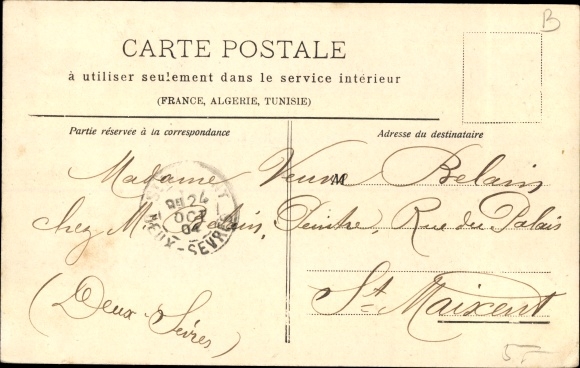 B
CARTE POSTALE
à utiliser seulement dans le service intérieur
(FRANCE, ALGERIE, TUNISIE)
Partie réservée à la correspondance
Adresse du destinataire
Madame Veuve Belain
M
chez M. Belain, Peintre Rue du Palais
24
OCT
04
DEUX-SEVRES
St Maixent
(Deux-Sèvres)
5-